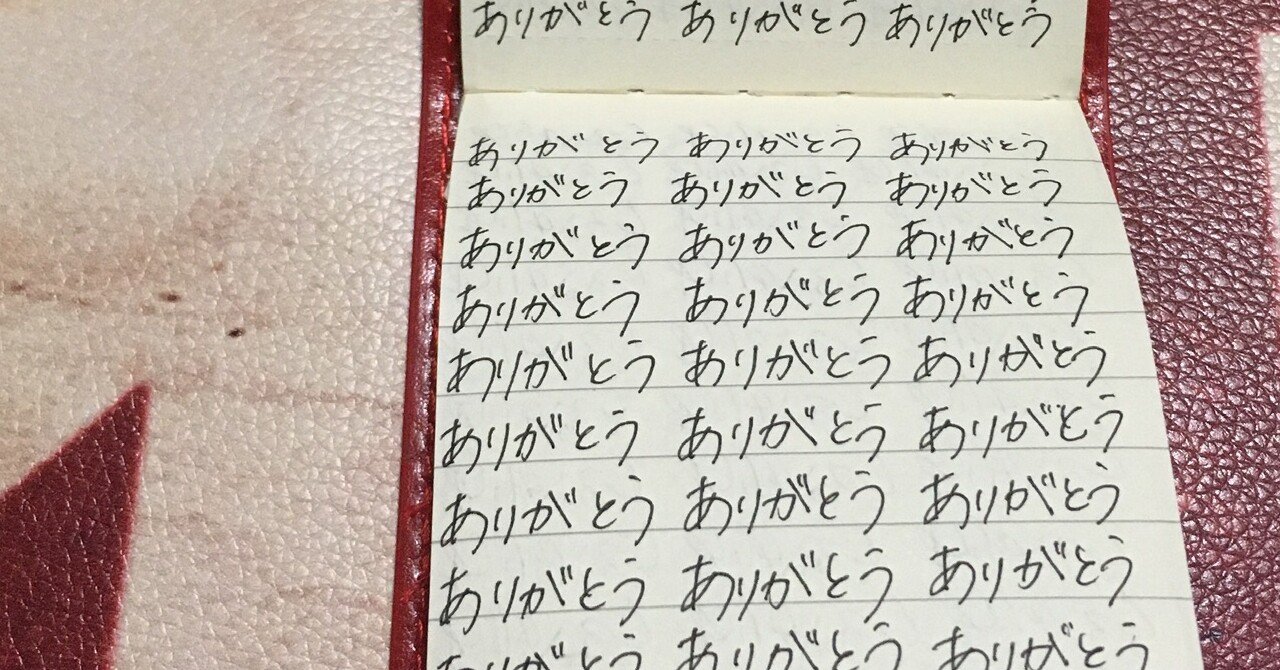 ありがとう ありがとう ありがとう
ありがとう ありがとう ありがとう
ありがとう ありがとう ありがとう
ありがとう ありがとう ありがとう
ありがとう ありがとう ありがとう
ありがとう ありがとう ありがとう
ありがとう ありがとう ありがとう
ありがとう ありがとう ありがとう
ありがとう ありがとう ありがとう
ありがとう ありがとう ありがとう